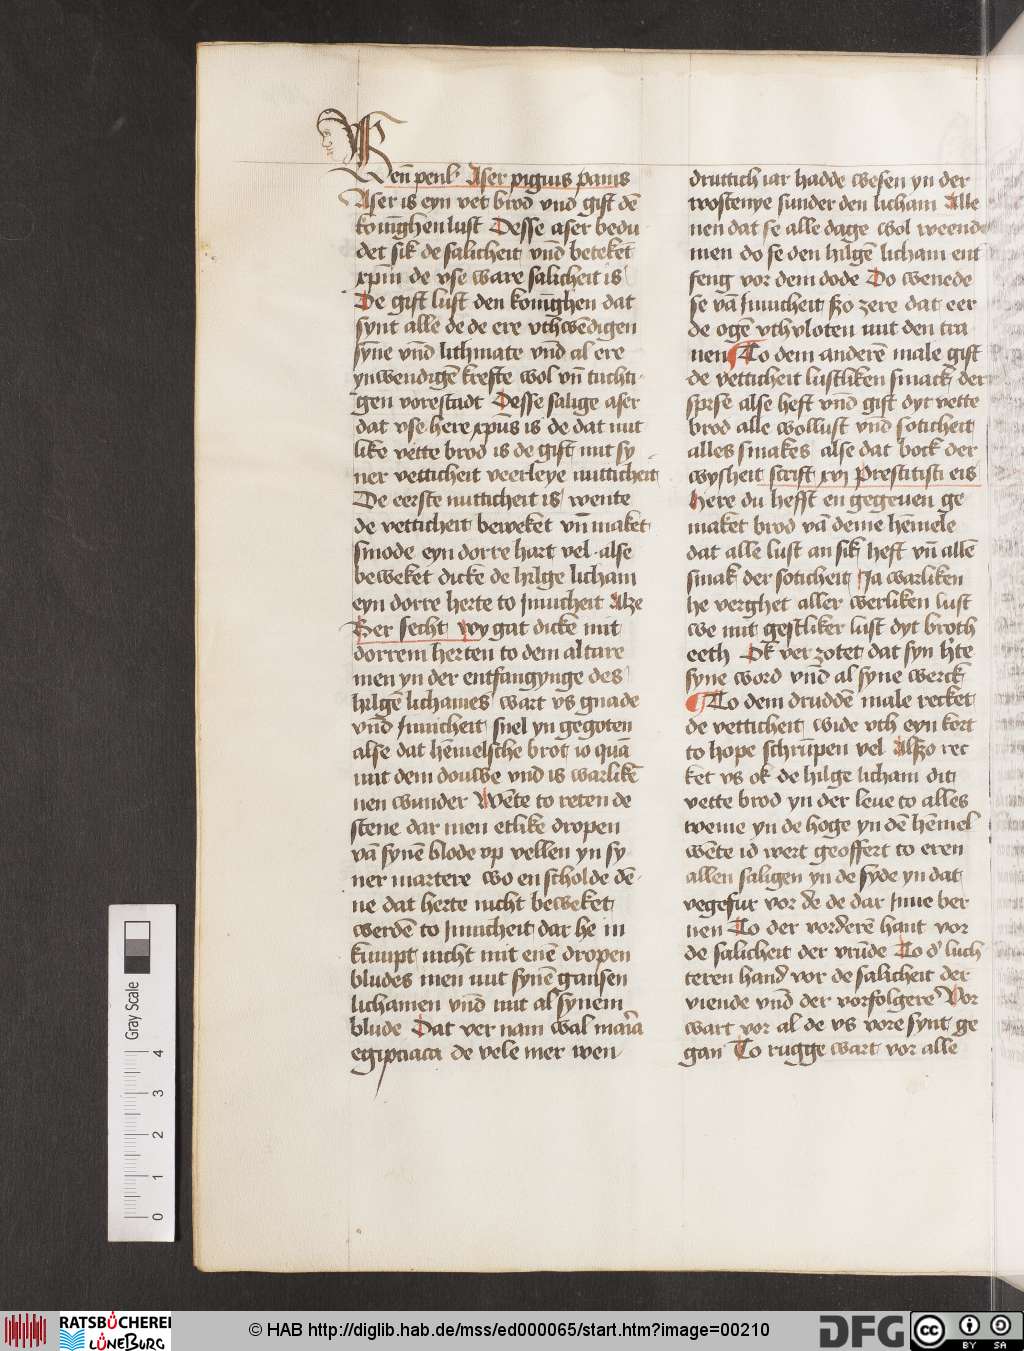 Gen̄ penl' Aser piguis panis
Aser is eyn vet brod vnd gift dē
konīghen lust Desse aser bedu
det sik de salicheit vn̄d beteket
xpm̄ de vse ware salicheit is
De gift lust den konīghen dat
synt alle de de ere vthwēdigen
sȳne vn̄d lithmate vn̄d al ere
ynwendigē krefte wol vn̄ tuchti
gen vorestadt Desse salige aser
dat vse here xp̄us is de dat mit
like vette brod is de gift mit sy
ner vetticheit veerleye nutticheit
De eerste nutticheit is wente
de vetticheit beweket vn̄ maket
smode eyn dorre hart vel alse
beweket dicke de hilge licham
eyn dorre herte to Innicheit Alze
Ber secht wy gat dicke mit
dorrem herten to dem altare
men yn der entfangynge des
hilgē lichames wart vs gnade
vn̄d Innicheit snel yn gegoten
alse dat hēmelsche brot io quā
mit dem douwe vnd is warlikē
nen wunder Wēte to reten de
stene dar men etlike dropen
vā synē blode vp vellen yn sy
ner martere wo en scholde dē
ne dat herte nicht beweket
werdē to Innicheit dar he in
kumpt nicht mit enē dropen
bludes men mit synē gansen
lichamen vn̄d mit al synem
blude Dat ver nam wal maria
egipciaca de vele mer wen
druttich iar hadde wesen yn der
wostenye sunder den licham Alle
nen dat se alle dage wol weende
men do se den hilgē licham ent
feng vor dem dode Do wenede
se vā Innicheit szo zere dat eer
de ogē vthvloten mit den tra
nen To dem anderē male gift
de vetticheit lustliken smack der
spise alse heft vn̄d gift dyt vette
brod alle wollust vnd soticheit
alles smakes alse dat bock der
wysheit scrift xvi Prestitisti eis
here du hefft en gegeuen ge
maket brod vā deme hēmele
dat alle lust an sik heft vn̄ allē
smak der soticheit Ja warliken
he verghet aller werliken lust
we mit gestliker lust dyt broth
eeth Ok ver zotet dat syn h'te
syne word vnd al syne werck
To dem druddē male recket
de vetticheit wide vth eyn kort
to hope schrūpen vel Alszo rec
ket vs ok de hilge licham dit
vette brod yn der leue to alles
weme yn de hoge yn dē hēmel
wēte id wert geoffert to eren
allen saligen yn de syde yn dat
vegefur vor de de dar Inne ber
nen To der vorderē hant vor
de salicheit der vrūde To d' luch
teren hand vor de salicheit der
viende vn̄d der vorfolgere Vor
wart vor al de vs vore synt ge
gan To rugge wart vor alle
Gray Scale
4
3
2
1
0
RATSBÜCHEREI
LÜNEBURG
© HAB http://diglib.hab.de/mss/ed000065/start.htm?image=00210
DFG
cc
BY SA